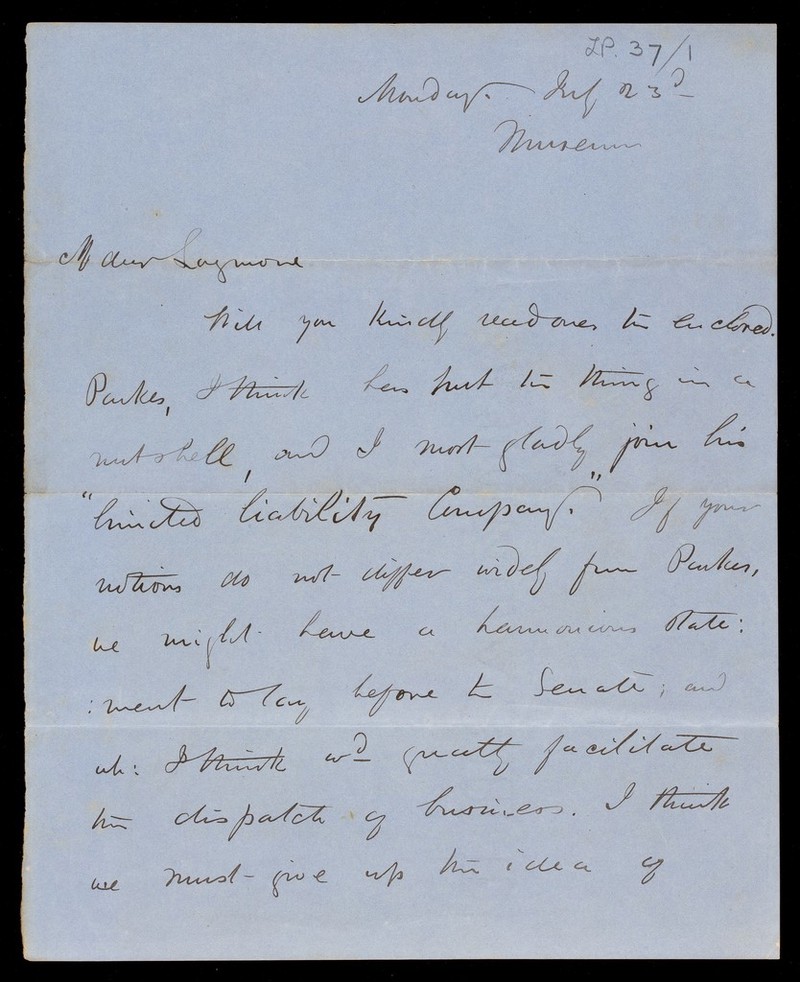 LP. 37/1
Monday. July 23d
Museum
M dear Laycock
Will you kindly read over the enclosed.
Parkes, I think has put the thing in a
nutshell, and I most gladly join his
"limited liability Company." If your
notions do not differ widely from Parkes,
we might have a harmonious state:
:ment to lay before the Senate; and
wh: I think wd greatly facilitate
the dispatch of business. I think
we must give up the idea of